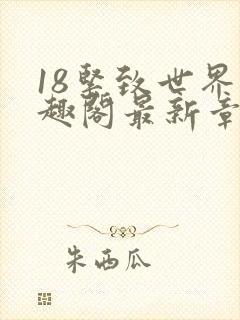 18紧致世界
趣阁最新章
朱西瓜